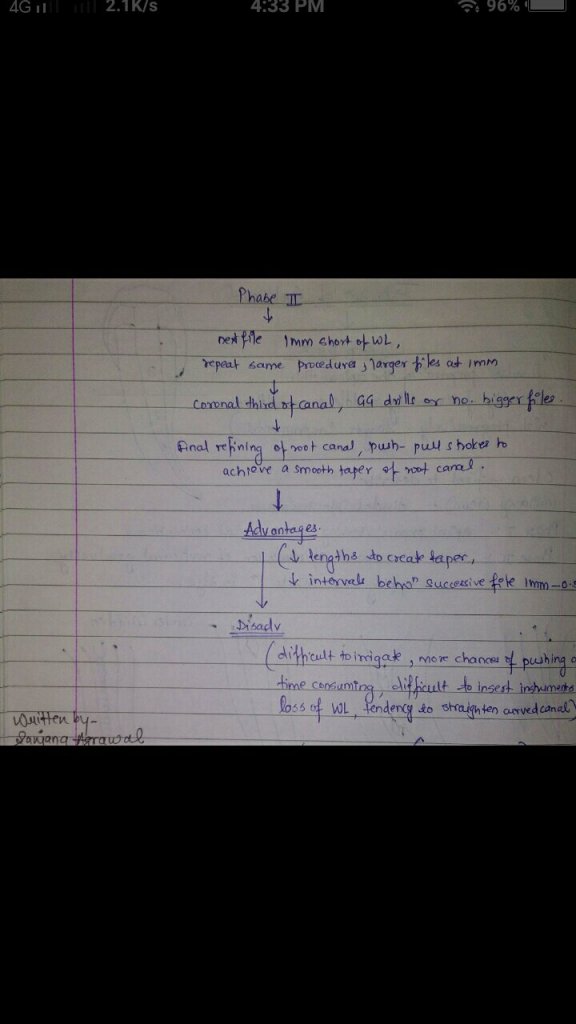 4G 2.1K/s 4:33 PM 96%
Phase II
↓
next file 1mm short of WL,
repeat same procedures, larger files at 1mm
↓
Coronal third of canal, GG drills or no. bigger files.
↓
final refining of root canal, push-pull strokes to
achieve a smooth taper of root canal.
↓
Advantages.
(↓ lengths to create taper,
↓ intervals betwn successive file 1mm-0.5
Disadv
(difficult to irrigate, more chances of pushing
time consuming, difficult to insert instruments
loss of WL, tendency to straighten curved canal)
Written by-
Sanjana Agrawal